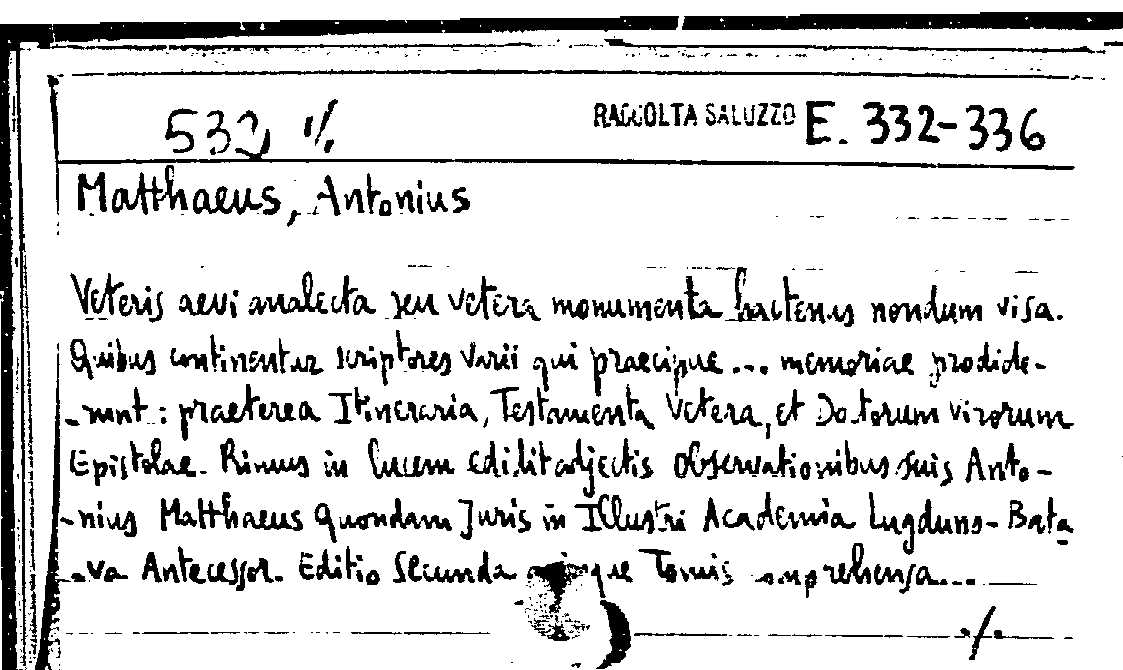 532 ·/. RACCOLTA SALUZZO E. 332-336
Matthaeus, Antonius
Veteris aevi analecta seu vetera monumenta hactenus nondum visa.
Quibus continentur scriptores varii qui praecipue ... memoriae prodide-
-runt: praeterea Itineraria, Testamenta Vetera, et Doctorum virorum
Epistolae. Primus in lucem edidit adjectis observationibus suis Anto-
-nius Matthaeus quondam Juris in Illustri Academia Lugduno-Bata
-va Antecessor. Editio Secunda quinque Tomis comprehensa...
./.